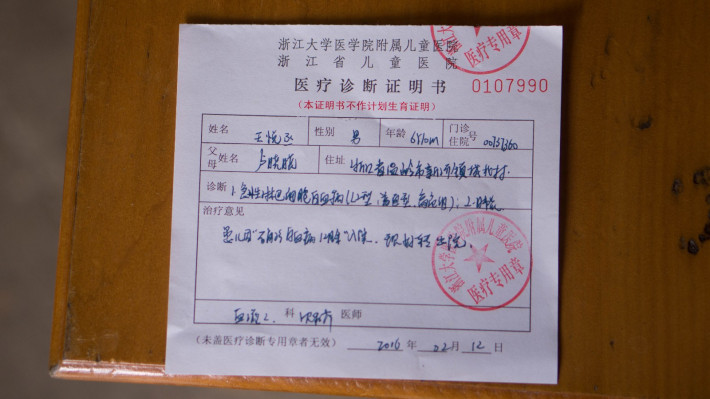 浙江大学医学院附属儿童医院
浙江省儿童医院
医疗诊断证明书 0107990
(本证明书不作计划生育证明)
姓名 王悦丞 性别 男 年龄 6Y10m 门诊住院号 00737360
父母姓名 卢晓晓 住址 浙江省温岭市新河镇
诊断 1.急性淋巴细胞白血病(L2型, 高危组); 2.
治疗意见
患儿因"白血病 " 入院. 现好转出院.
血液2 科 医师
(未盖医疗诊断专用章者无效) 2016年 02月 12日
医疗专用章
浙江大学医学院附属儿童医院
医疗专用章